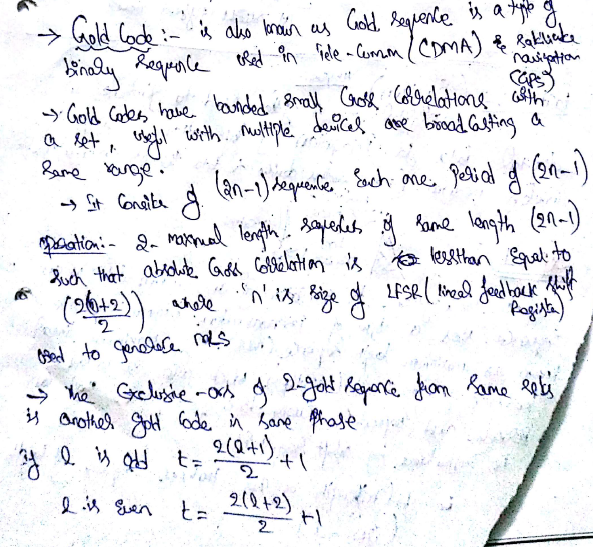 → Gold Code :- is also known as Gold Sequence is a type of
binary Sequence used in Tele-Comm (CDMA) & Satellite
navigation
(GPS)
→ Gold Codes have bounded small Cross Correlations with
a set, useful with multiple devices are broad casting a
Same range.
→ It Consits of (2n-1) sequence each one Period of (2n-1)
2- maximal length sequences of same length (2n-1)
Such that absolute Cross Correlation is less than Equal to
(2(n+2)/2) where 'n' is size of LFSR (linear feedback Shift
Register)
used to generate
→ The Exclusive-ors of 2-gold Sequence from Same sets
is another gold Code in Same Phase
if l is odd t = 2(l+1)/2 + 1
l is Even t = 2(l+2)/2 + 1